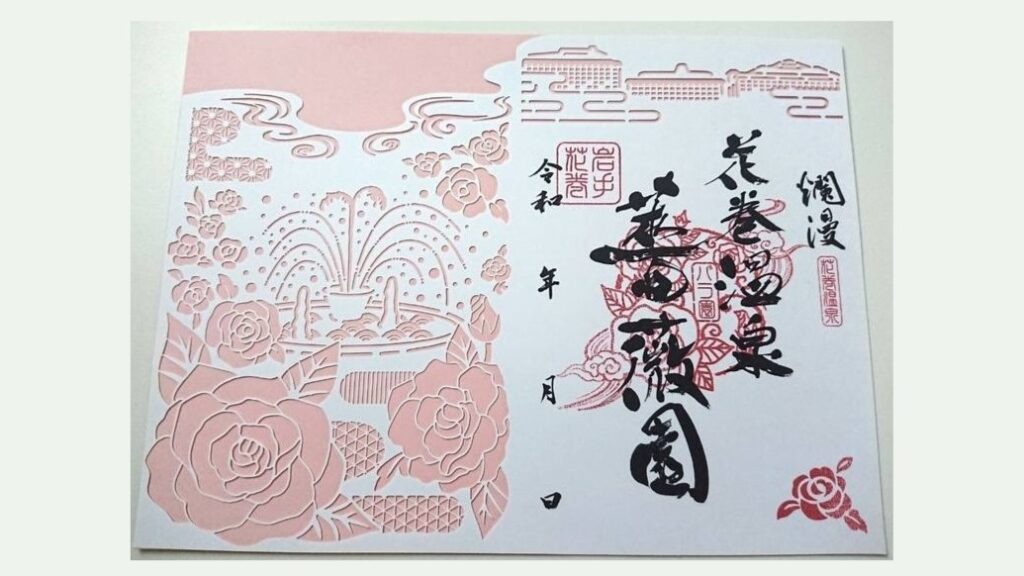 爛漫
花巻温泉
花巻温泉
バラ園
薔薇園
岩手
花巻
令和 年 月 日